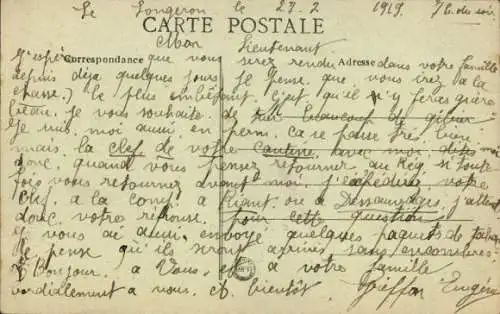 Le Longeron le 23-2 1919. 7h du soir
CARTE POSTALE
Mon Lieutenant
Correspondance
Adresse
J'espère que vous serez rendu dans votre famille
depuis déja quelques jours je pense que vous irez a la
chasse, le plus embêtant c'est qu'il n'y feras guère
beau. je vous souhaite de tuer beaucoup de gibier
Je suis moi aussi en perm. ca se passe très bien
mais la clef de votre cantine avec moi dites moi
donc quand vous pensez retourner au Rég. si toute
fois vous retournez avant moi, j'expédirez votre
clef. a la comp. a ou a j'attends
donc votre réponse pour cette question
Je vous ai aussi envoyé quelques paquets de tabac
je pense qu'ils seront arrivés sans encombres.
Bonjour a Vous et a votre famille
cordialement a vous. et bientôt Eugène